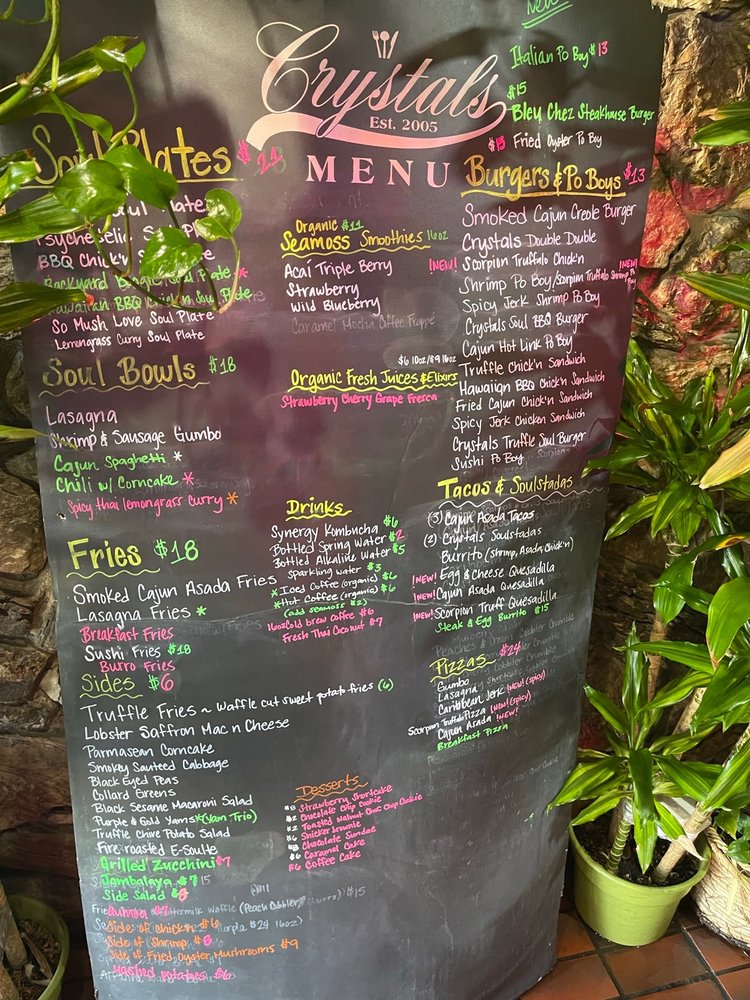 New
Italian Po Boy $13
$15
Bley Chez Steakhouse Burger
$13 Fried Oyster Po Boy
Crystals
Est. 2005
MENU
Soul Plates
Soul Plate
Psychedelic Soul Plate
BBQ Chick'n Soul Plate
Backyard Plate *
Hawaiian BBQ Chick'n Soul Plate
So Mush Love Soul Plate
Lemongrass Curry Soul Plate
Soul Bowls $18
Lasagna
Shrimp & Sausage Gumbo
Cajun Spaghetti *
Chili w/ Corncake *
Spicy thai lemongrass curry *
Fries $18
Smoked Cajun Asada Fries
Lasagna Fries *
Breakfast Fries
Sushi Fries $18
Burro Fries
Sides $6
Truffle Fries ~ Waffle cut sweet potato fries (6)
Lobster Saffron Mac n Cheese
Parmasean Corncake
Smokey Sauteed Cabbage
Black Eyed Peas
Collard Greens
Black Sesame Macaroni Salad
Purple & Gold Yams *(Yam Trio)
Truffle Chive Potato Salad
Fire roasted E-Soulte
Grilled Zucchini $7
Jambalaya $7
Side Salad $8
Side of chicken $6
Side of Shrimp $8
Side of Fried Oyster Mushrooms $9
Mashed potatoes $6
Organic $11
Seamoss Smoothies 16oz
Acai Triple Berry
Strawberry
Wild Blueberry
Caramel Mocha Coffee Frappe
$6 10oz/$9 16oz
Organic Fresh Juices & Elixirs
Strawberry Cherry Grape Fresca
Drinks
Synergy Kombucha $6
Bottled Spring Water $2
Bottled Alkaline Water $5
Sparkling water $3
*Iced Coffee (organic) $6
*Hot Coffee (organic) $6
(add seamoss $2)
16oz Cold brew coffee $6
Fresh Thai Coconut $7
Desserts
$8 Strawberry Shortcake
$2 Chocolate Chip Cookie
$2 Toasted Walnut Choc Chip Cookie
$6 Snicker Brownie
$8 Chocolate Sundae
$6 Caramel Cake
$6 Coffee Cake
Burgers & Po Boys $13
Smoked Cajun Creole Burger
Crystals Double Double
[NEW!] Scorpion Truffalo Chick'n [NEW!]
Shrimp Po Boy/Scorpion Truffalo Shrimp Po Boy
Spicy Jerk Shrimp Po Boy
Crystals Soul BBQ Burger
Cajun Hot Link Po Boy
Truffle Chick'n Sandwich
Hawaiian BBQ Chick'n Sandwich
Fried Cajun Chick'n Sandwich
Spicy Jerk Chicken Sandwich
Crystals Truffle Soul Burger
Sushi Po Boy
Tacos & Soulstadas
(3) Cajun Asada Tacos
(2) Crystals Soulstadas
Burrito (Shrimp, Asada, Chick'n)
[NEW!] Egg & Cheese Quesadilla
[NEW!] Cajun Asada Quesadilla
[NEW!] Scorpion Truff Quesadilla
Steak & Egg Burrito $15
Pizzas $24
Gumbo
Lasagna
Caribbean Jerk [NEW! (spicy)]
Scorpion Truffalo Pizza [NEW! (spicy)]
Cajun Asada [NEW!]
Breakfast Pizza